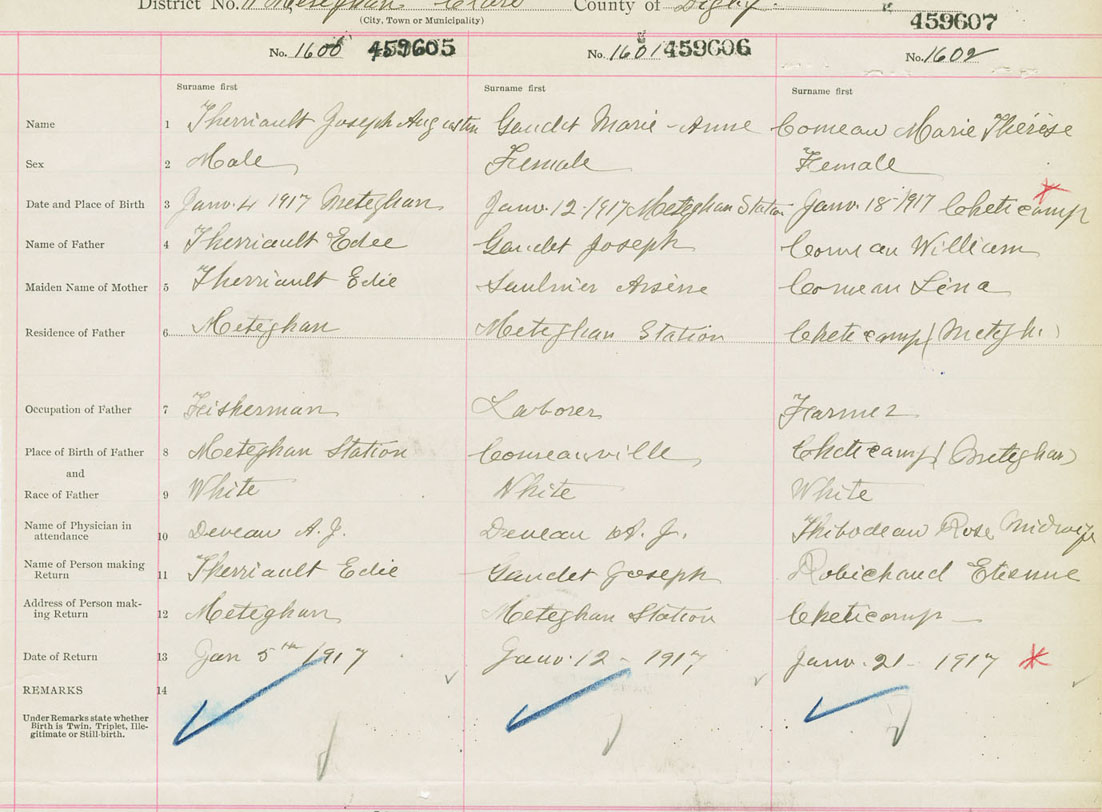 District No. 11 Meteghan Clare County of Digby.
(City, Town or Municipality)
459607
No. 1600 459605 No. 1601 459606 No. 1602
Surname first Surname first Surname first
Name 1 Therriault Joseph Augustin Gaudet Marie-Anne Comeau Marie Thérèse
Sex 2 Male Female Female
Date and Place of Birth 3 Janv. 4 1917 Meteghan Janv. 12-1917 Meteghan Station Janv. 18-1917 Cheticamp
Name of Father 4 Therriault Edee Gaudet Joseph Comeau William
Maiden Name of Mother 5 Therriault Edie Saulnier Arsène Comeau Lina
Residence of Father 6 Meteghan Meteghan Station Cheticamp (Metegh.)
Occupation of Father 7 Fisherman Laborer Farmer
Place of Birth of Father 8 Meteghan Station Comeauville Cheticamp (Meteghan)
and
Race of Father 9 White White White
Name of Physician in
attendance 10 Deveau A. J. Deveau A. J. Thibodeau Rose Midwife
Name of Person making
Return 11 Therriault Edie Gaudet Joseph Robichaud Etienne
Address of Person mak-
ing Return 12 Meteghan Meteghan Station Cheticamp
Date of Return 13 Jan 5th 1917 Janv. 12 - 1917 Janv. 21 - 1917
REMARKS 14
Under Remarks state whether
Birth is Twin, Triplet, Ille-
gitimate or Still-birth.